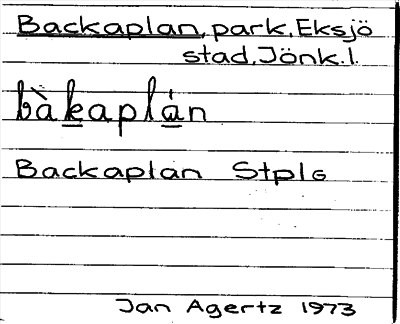 Backaplan, park, Eksjö
stad, Jönk. l.
bàkaplán
Backaplan StplG
Jan Agertz 1973